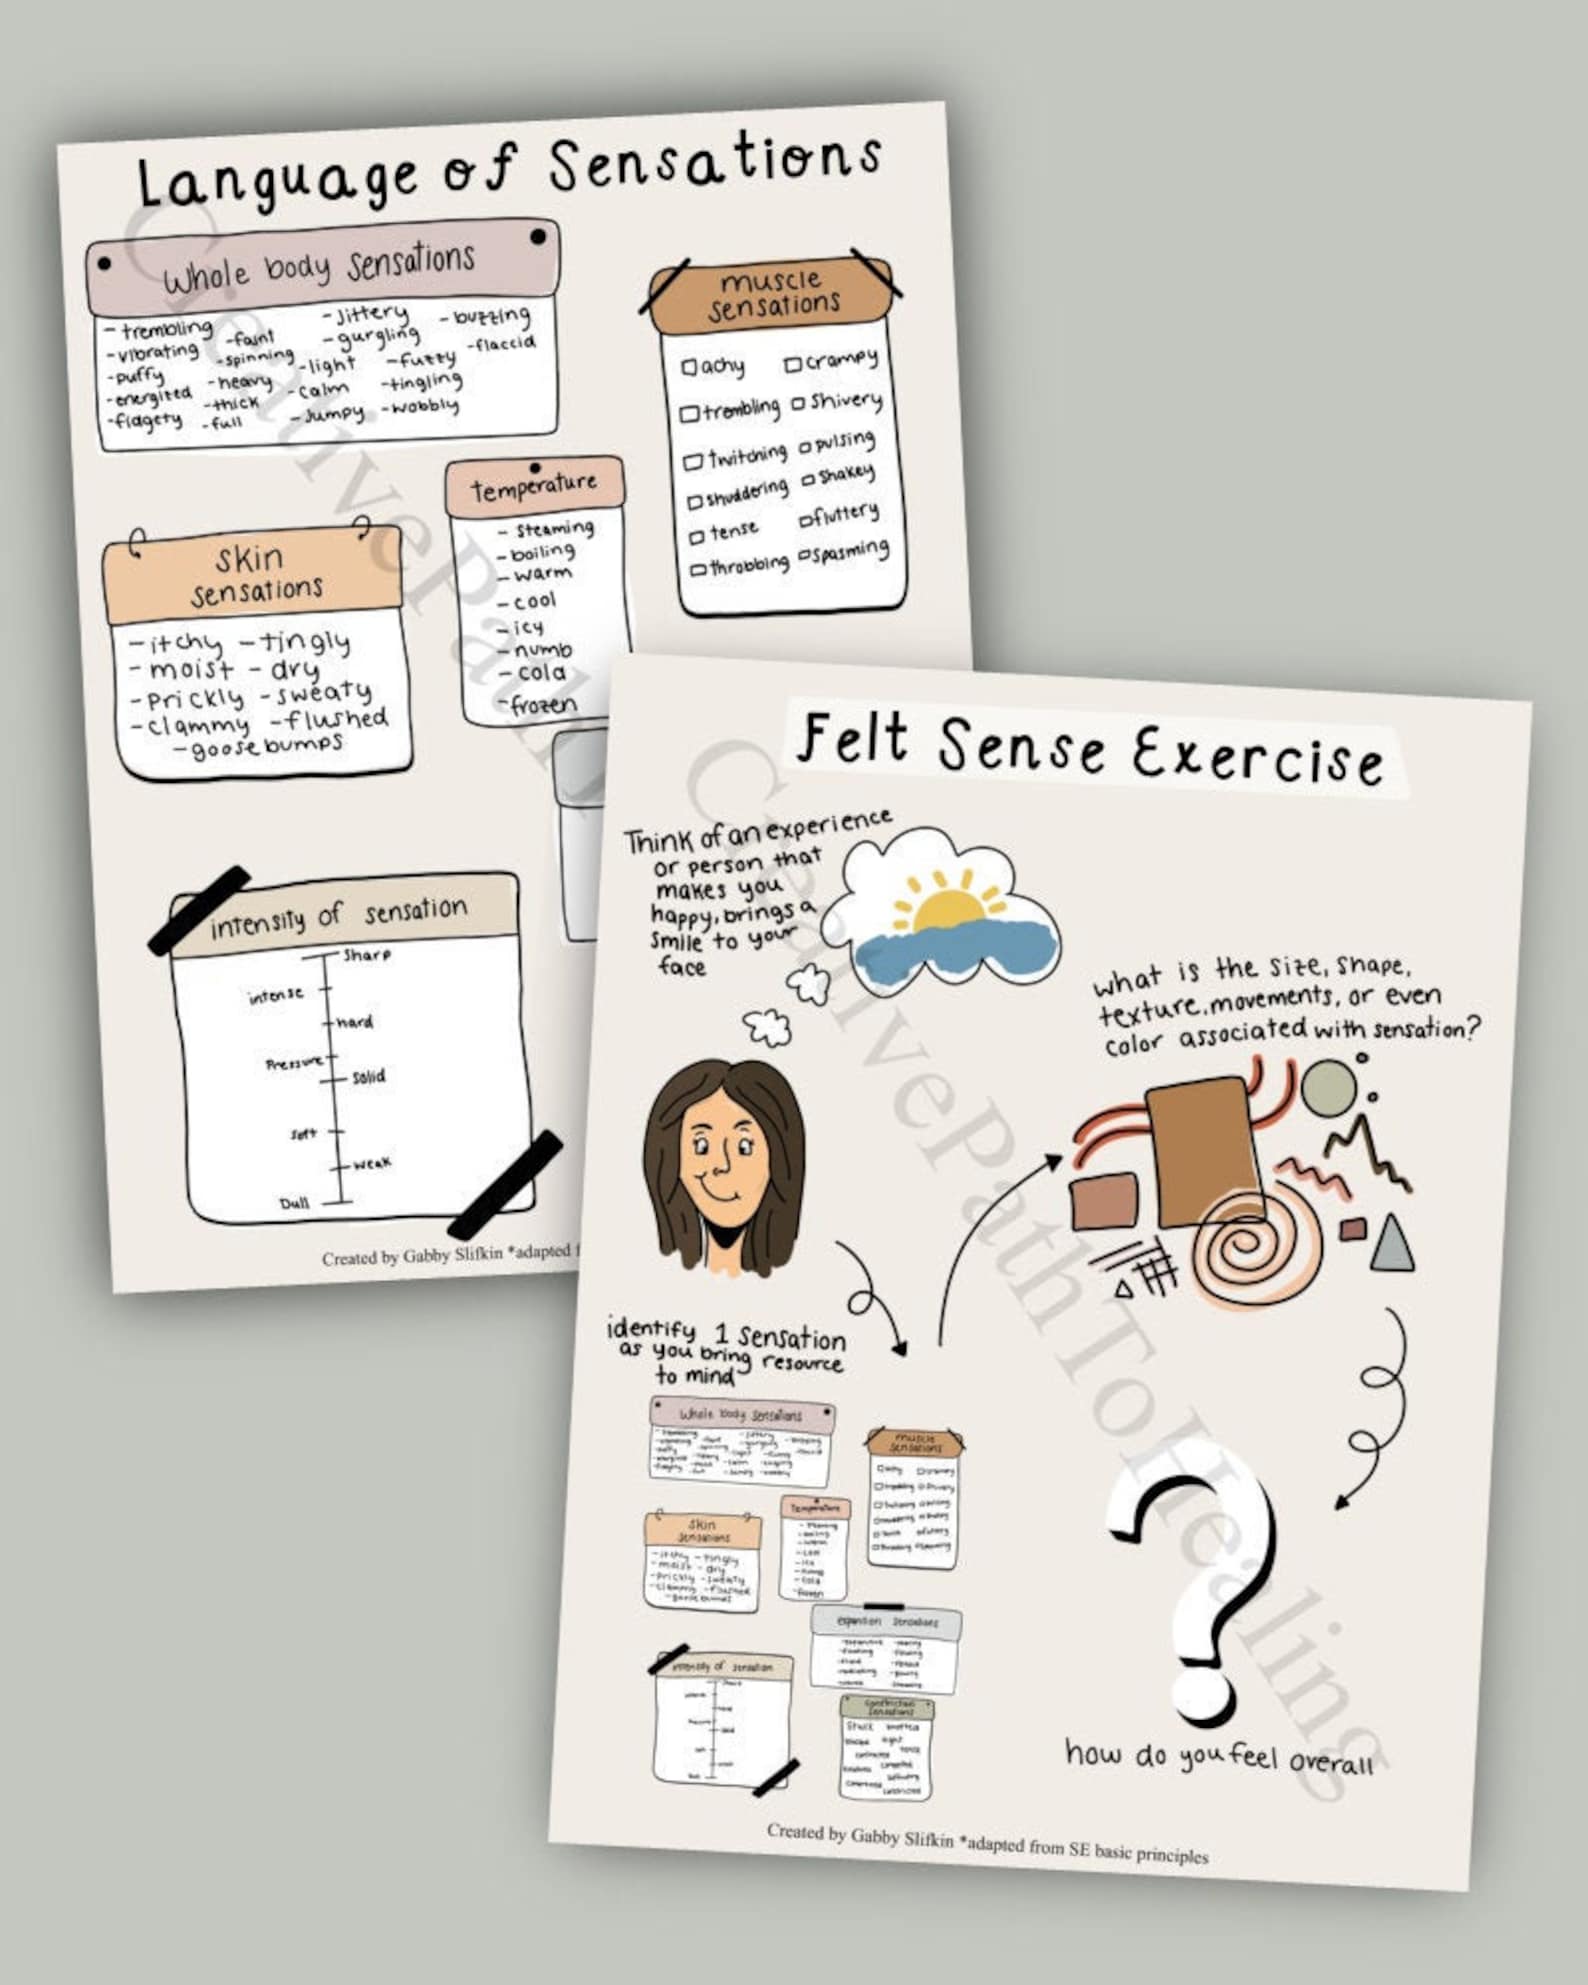 Language of Sensations
Whole body sensations
- trembling
- vibrating
- puffy
- energized
- fidgety
- faint
- spinning
- heavy
- thick
- full
- Jittery
- gurgling
- light
- calm
- Jumpy
- buzzing
- fuzzy
- flaccid
- tingling
- wobbly
muscle
sensations
achy crampy
trembling Shivery
twitching pulsing
shuddering Shakey
tense fluttery
throbbing spasming
temperature
- Steaming
- boiling
- warm
- cool
- icy
- numb
- cold
- frozen
Skin
sensations
- itchy - tingly
- moist - dry
- Prickly - sweaty
- clammy - flushed
- goosebumps
intensity of sensation
Sharp
intense
hard
Pressure
Solid
Soft
weak
Dull
Created by Gabby Slifkin *adapted f
Felt Sense Exercise
Think of an experience
or person that
makes you
happy, brings a
smile to your
face
what is the size, shape,
texture, movements, or even
color associated with sensation?
identify 1 sensation
as you bring resource
to mind
Whole body sensations
muscle
sensations
Temperature
Skin
sensations
- itchy - tingly
- moist - dry
- Prickly - sweaty
- clammy - flushed
- goosebumps
expansion sensations
intensity of sensation
how do you feel overall
Created by Gabby Slifkin *adapted from SE basic principles
CreativePath
CreativePathToHealing